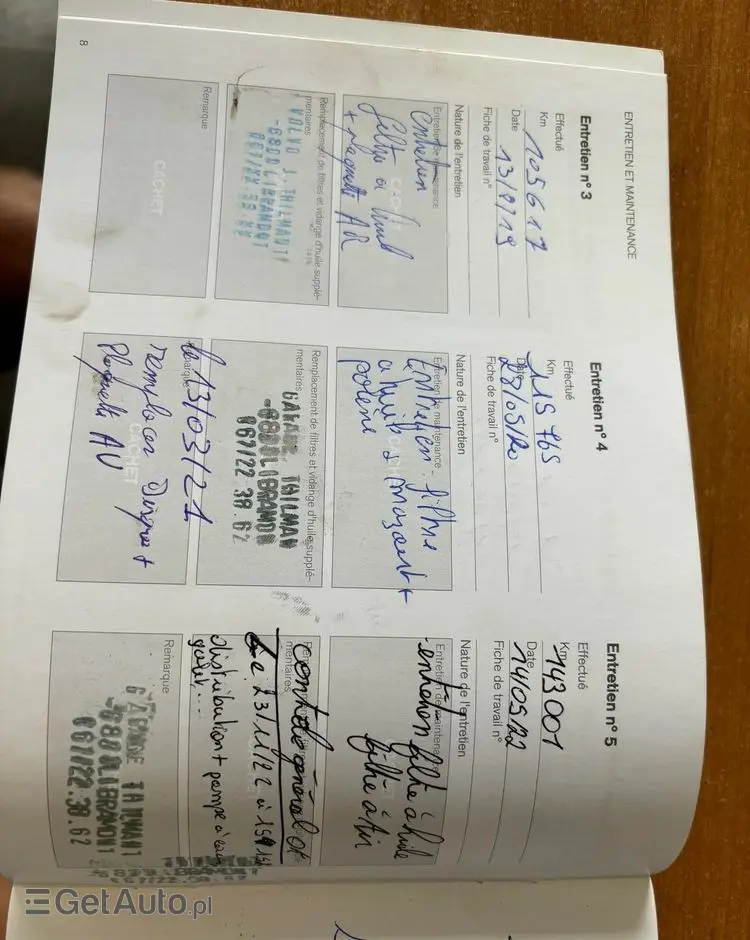 ENTRETIEN ET MAINTENANCE
Entretien n° 3
Effectué
Km 105617
Date 13/9/19
Fiche de travail n°
Nature de l'entretien
Entretien de maintenance
Entretien
filtre à huile
+ plaquette AR
CACHET
Remplacement de filtres et vidange d'huile supplé-
mentaires
VOLVO J. THILMANT
-6800 LIBRAMONT
061/22.38.62
Remarque
CACHET
8
Entretien n° 4
Effectué
Km 115765
Date
Fiche de travail n°
Nature de l'entretien
Entretien de maintenance
Entretien - filtre
à huile + mazout +
CACHET
Remplacement de filtres et vidange d'huile supplé-
mentaires
GARAGE THILMAN
-6800 LIBRAMON
061/22.38.62
Remarque
le 13/03/21
remplacer Disques +
Plaquette AV
CACHET
Entretien n° 5
Effectué
Km 143001
Date 14/05/22
Fiche de travail n°
Nature de l'entretien
Entretien de maintenance
entretien filtre à huile
filtre à air
mentaires
contrôle général ok
Le 23/11/22 à
distribution + pompe à eau
galet...
Remarque
GARAGE THILMANT
-6800 LIBRAMONT
061/22.38.62
GetAuto.pl